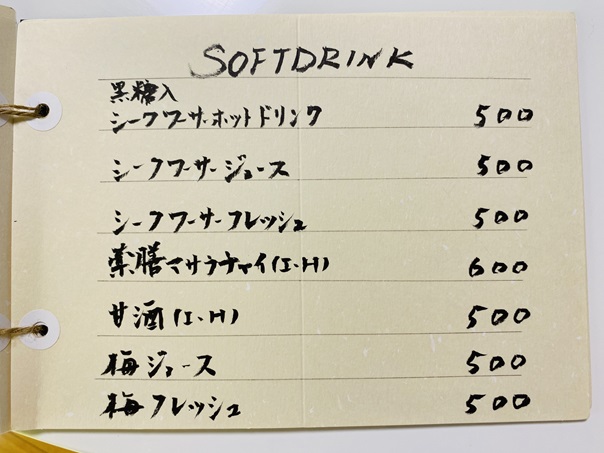 SOFTDRINK
黒糖入
シークワーサーホットドリンク 500
シークワーサージュース 500
シークワーサーフレッシュ 500
薬膳マサラチャイ(I・H) 600
甘酒(I・H) 500
梅ジュース 500
梅フレッシュ 500